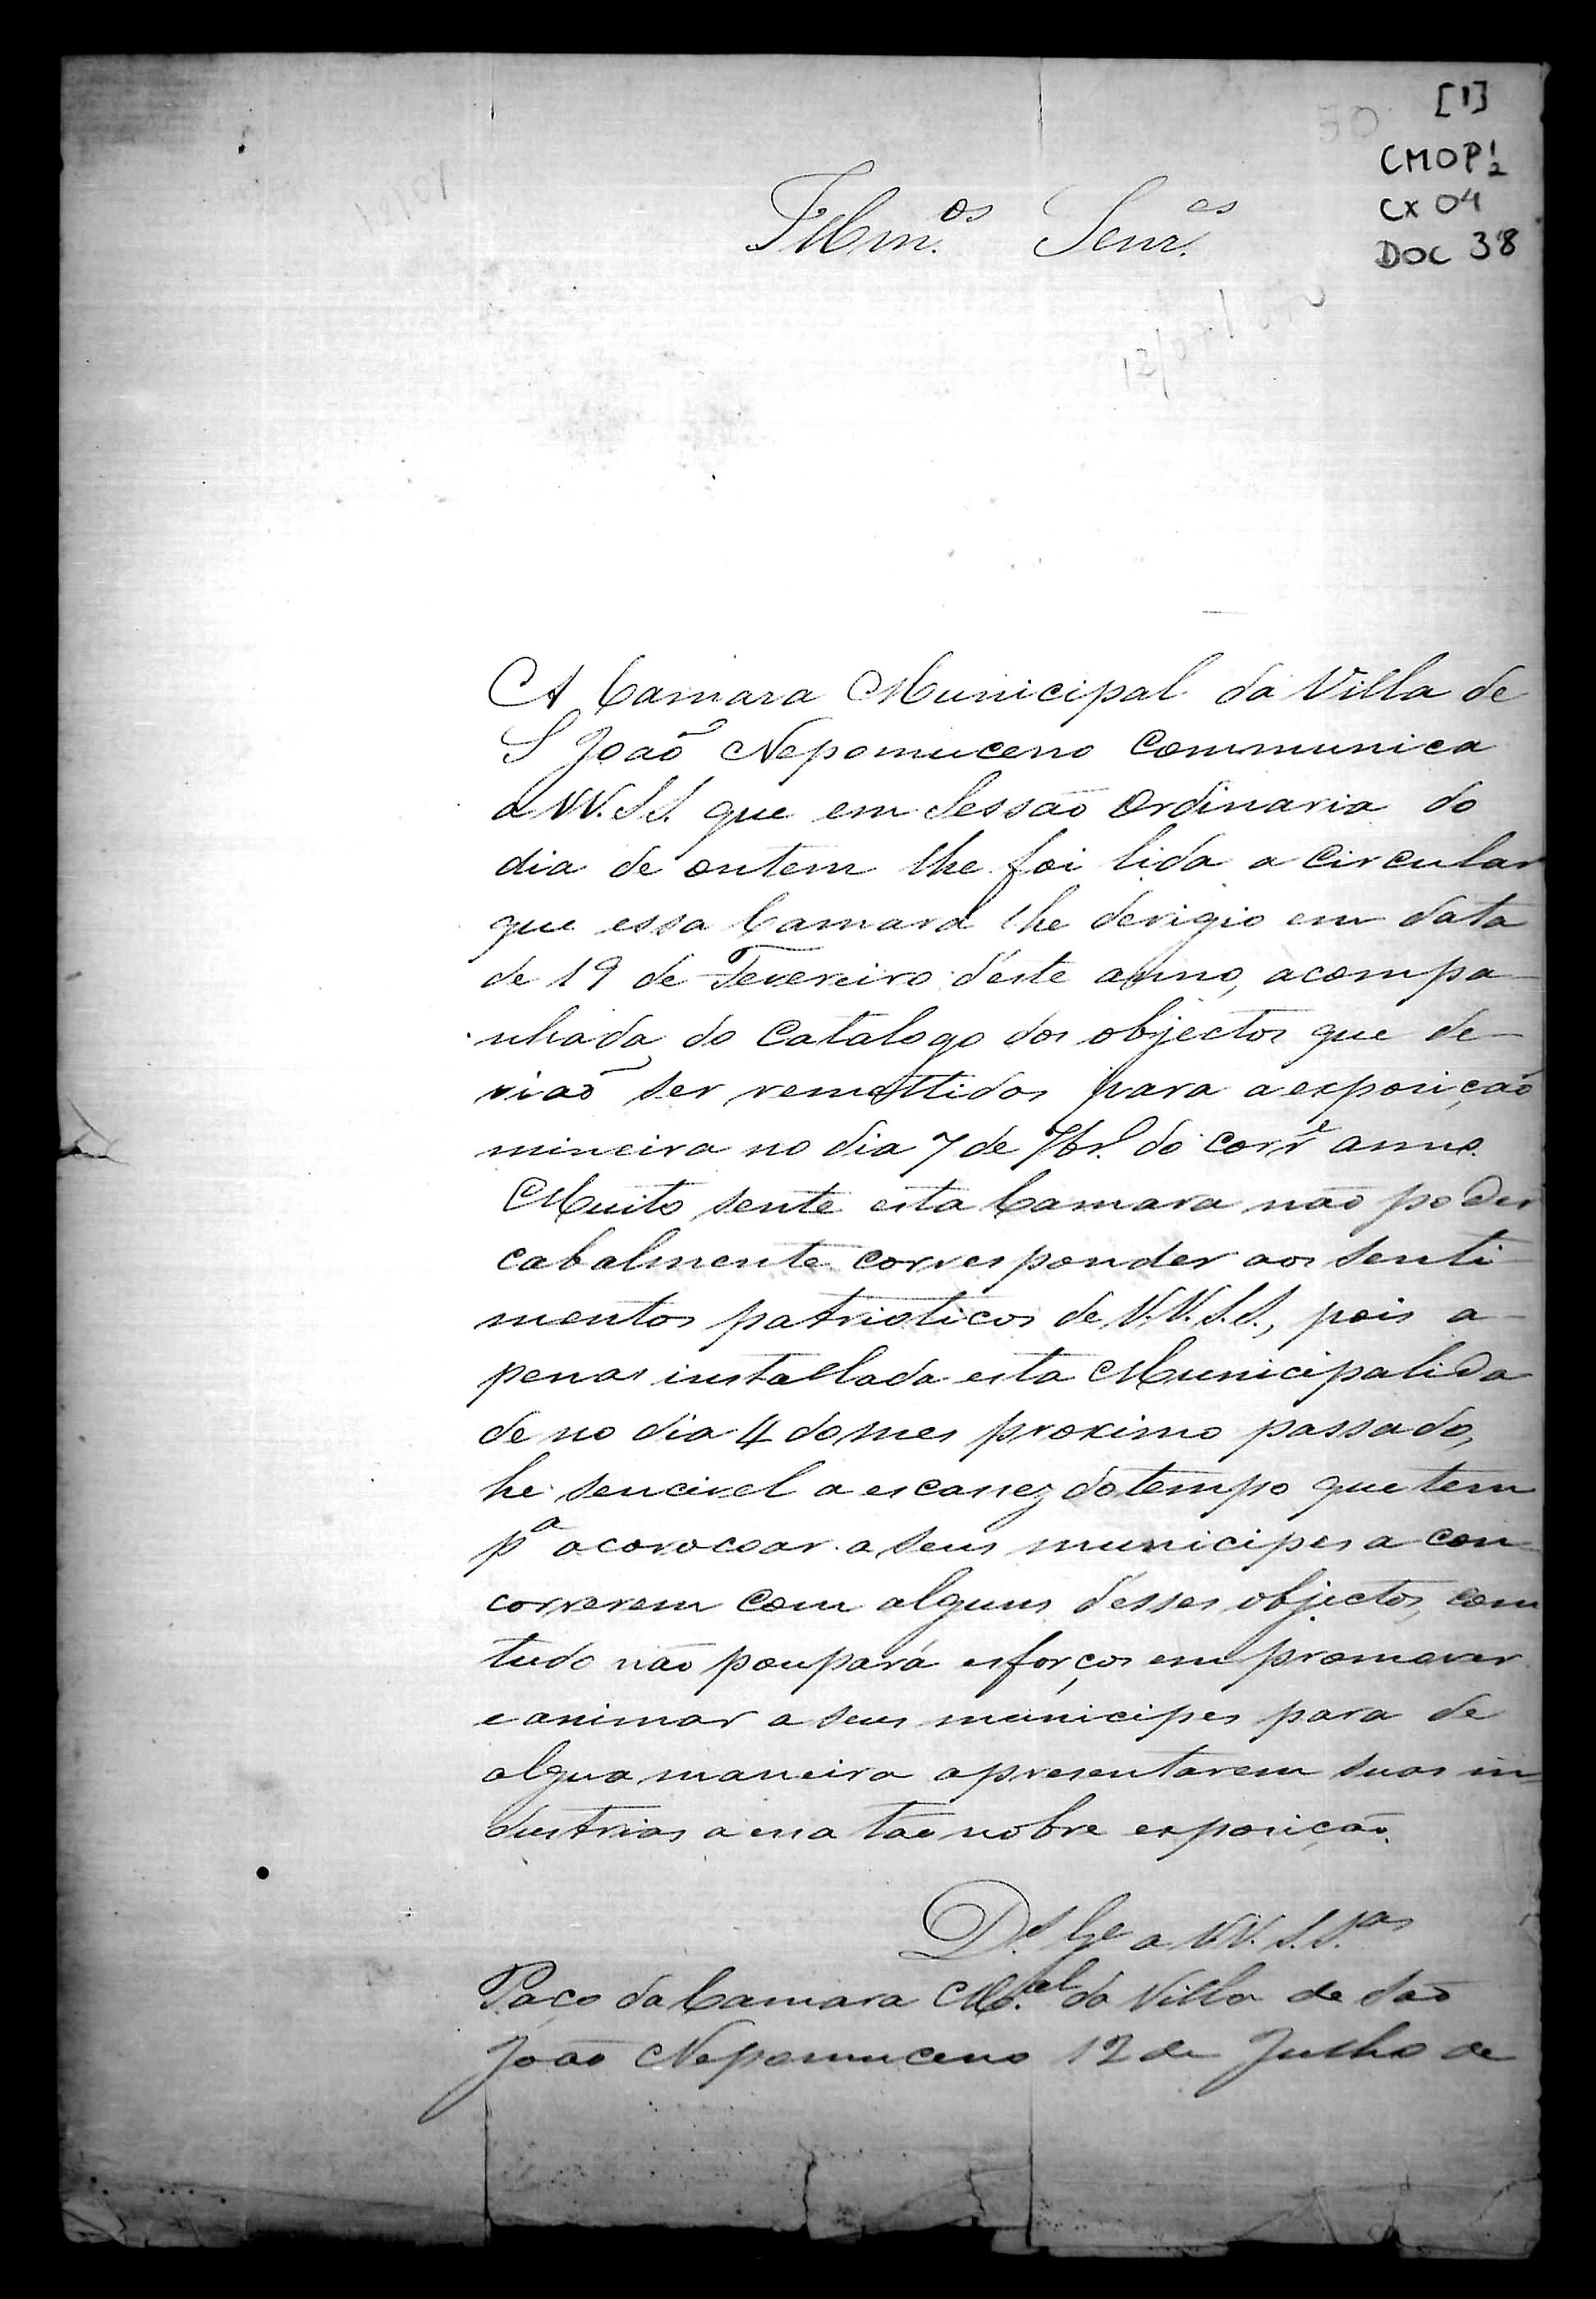 [1]
CMOP 1/2
CX 04
DOC 38
Illm.os Senr.es
A Camara Municipal da Villa de
S João Nepomuceno communica
a VV.SS. que em Sessão Ordinaria do
dia de ontem lhe foi lida a circular
que essa Camara lhe derigio em data
de 19 de Fevereiro d'este anno, acompa-
nhada do Catalogo dos objectos que de-
viaõ ser remettidos para a exposição
mineira no dia 7 de 7br.º do corr.e anno.
Muito sente esta Camara não poder
cabalmente corresponder aos senti-
mentos patrioticos de V.V.S.S., pois a-
penas installada esta Municipalida
de no dia 4 do mes proximo passado,
he sencivel a escassez do tempo que tem
p.a acoroçoar a seus municipes a con-
correrem com alguns d'esses objectos, com
tudo não poupará esforços em promover
e animar a seus municipes para de
algua maneira apresentarem suas in-
dustrias a essa tão nobre exposição.
D.s G.e a VV.S.S.as
Paço da Camara M.al da Villa de São
João Nepomuceno 12 de Julho de